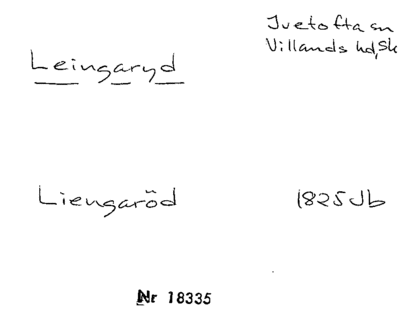 Leingaryd
Ivetofta sn
Villands hd, Sk
Liengaröd
1825 Jb
Nr 18335